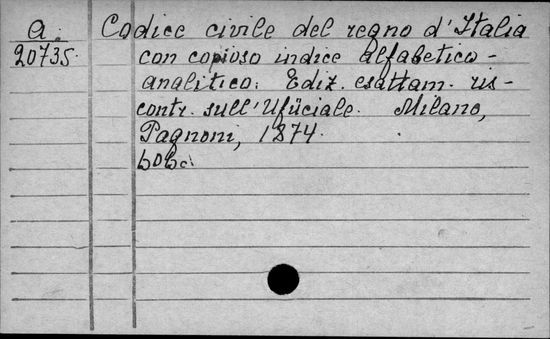 a. Codice civile del regno d'Italia
20735. con copioso indice alfabetico-
analitico. Ediz. esattam. ris-
contr. sull'Ufficiale. Milano,
Pagnoni, 1874.